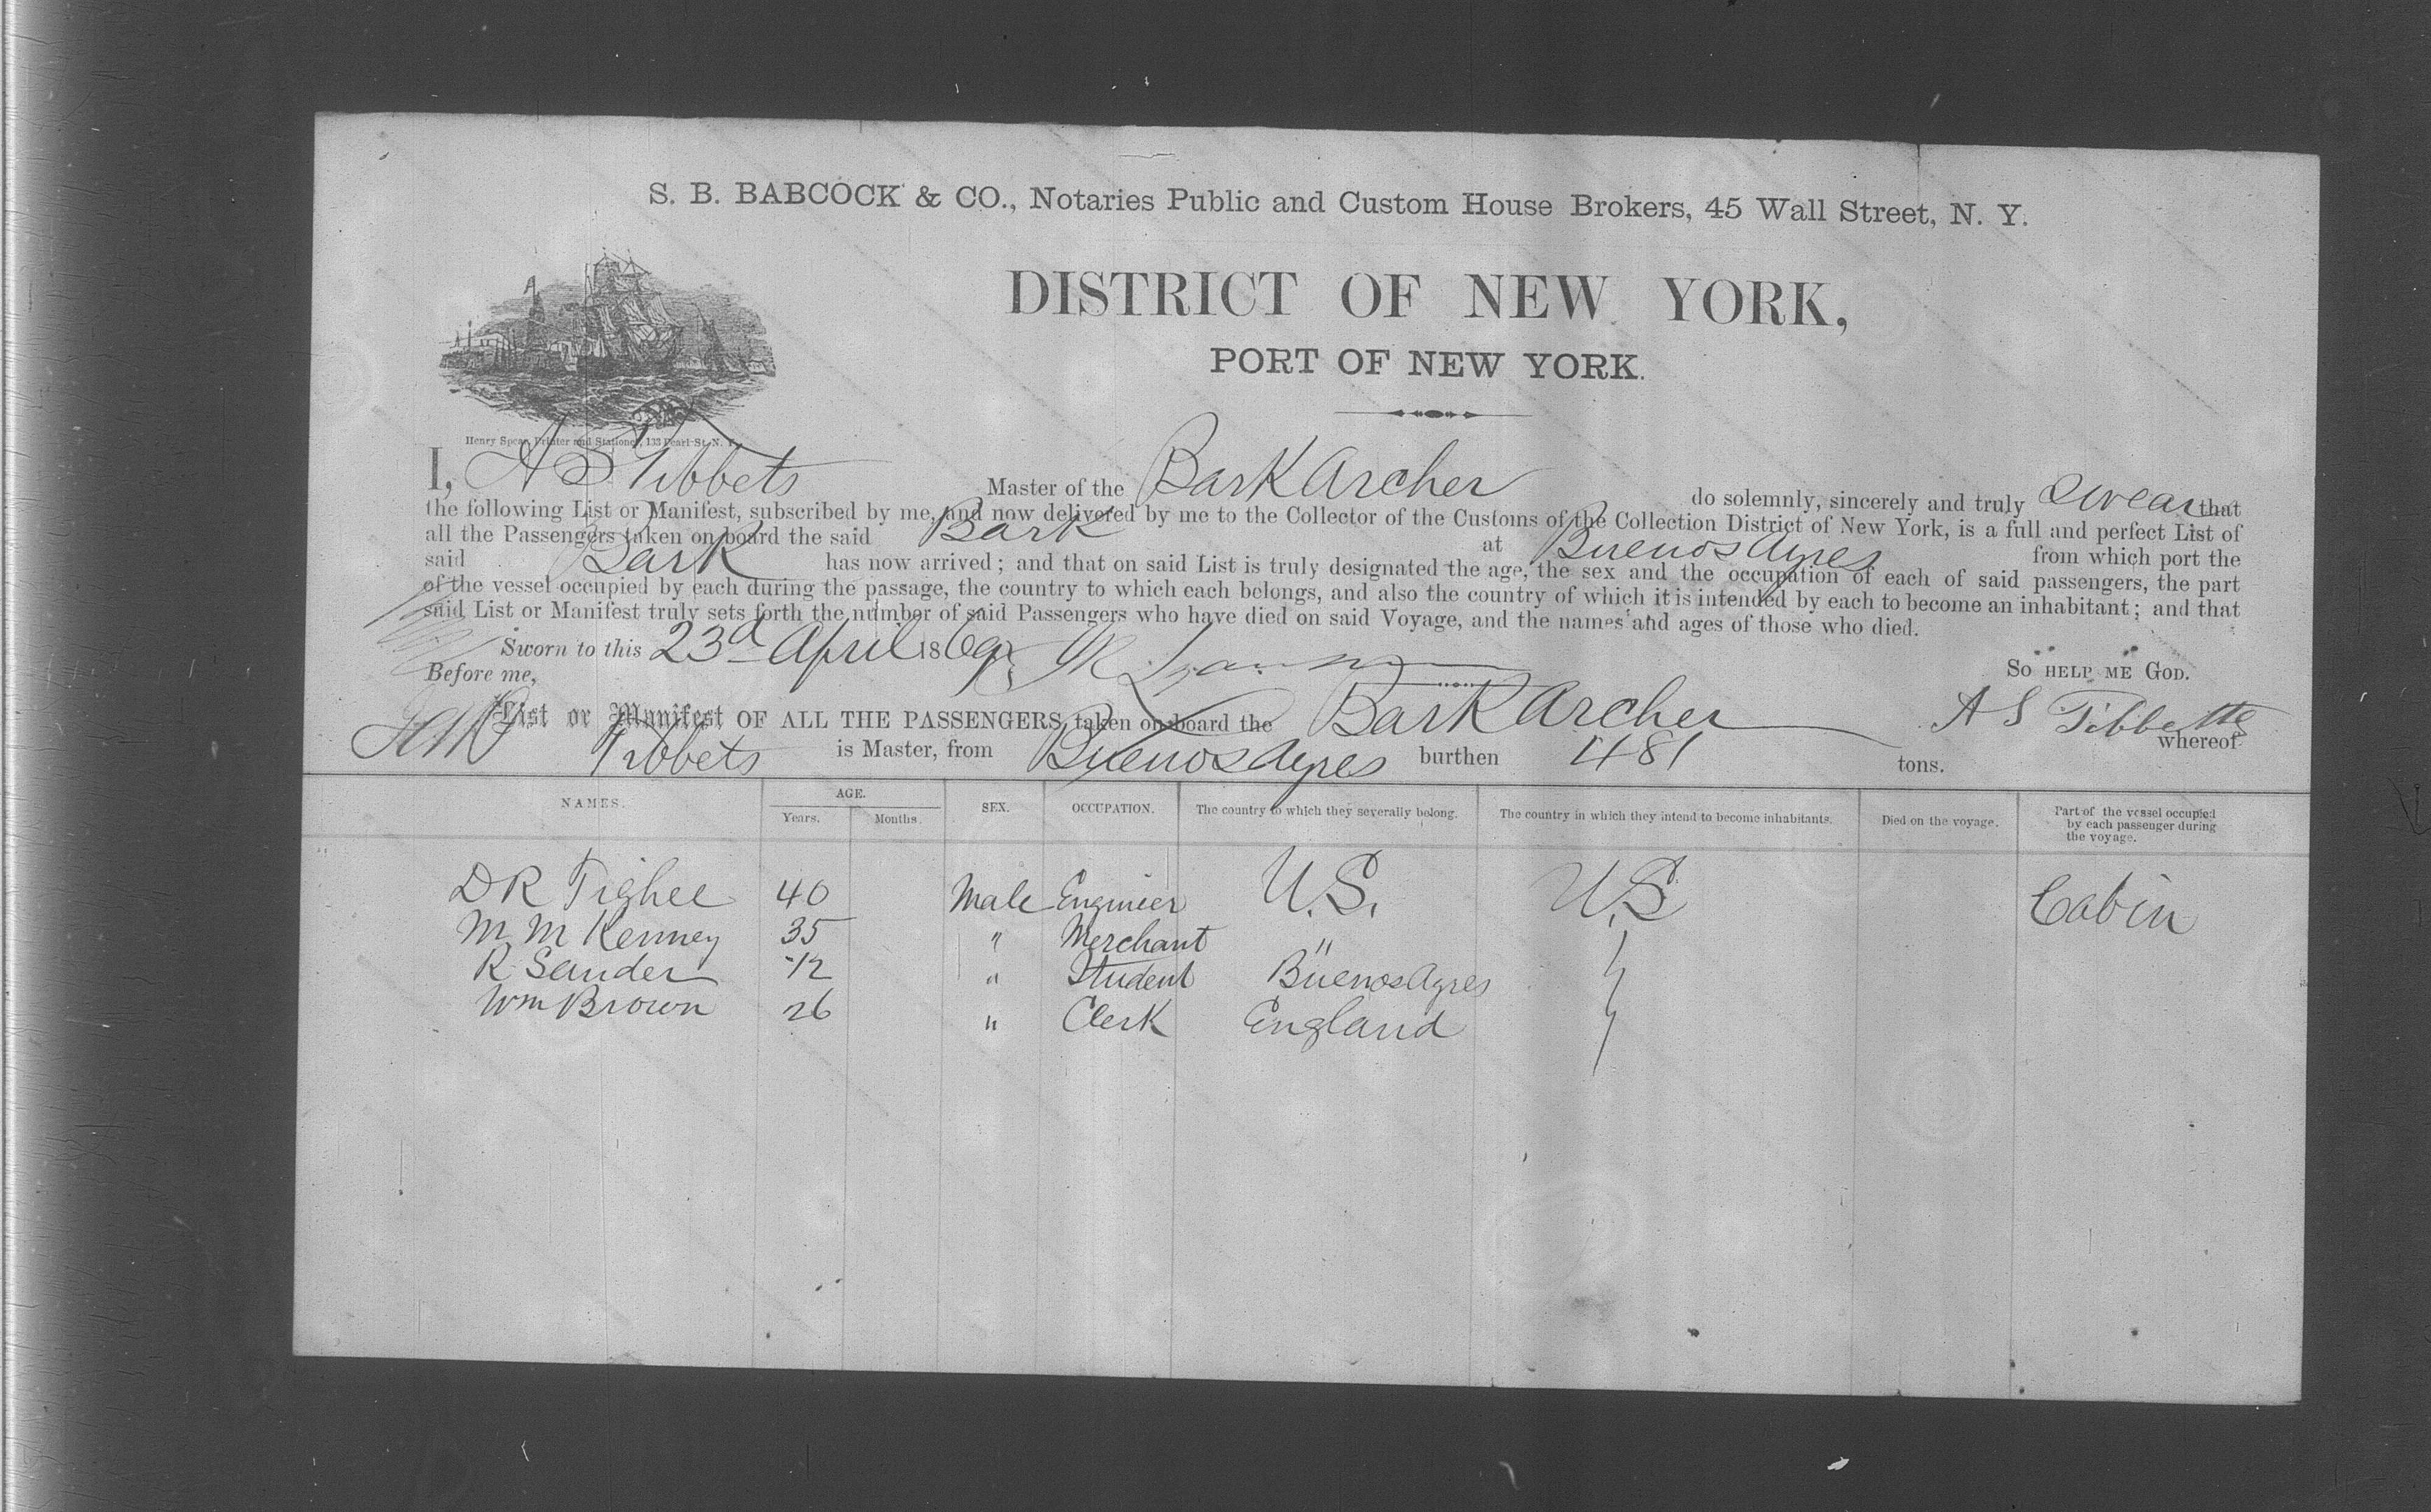 S. B. BABCOCK & CO., Notaries Public and Custom House Brokers, 45 Wall Street, N. Y.
DISTRICT OF NEW YORK,
PORT OF NEW YORK.
Henry Spear, Printer and Stationer, 133 Pearl-St. N. Y.
I, A S Tibbets Master of the Bark Archer do solemnly, sincerely and truly swear that
the following List or Manifest, subscribed by me, and now delivered by me to the Collector of the Customs of the Collection District of New York, is a full and perfect List of
all the Passengers taken on board the said Bark at Buenos Ayres from which port the
said Bark has now arrived; and that on said List is truly designated the age, the sex and the occupation of each of said passengers, the part
of the vessel occupied by each during the passage, the country to which each belongs, and also the country of which it is intended by each to become an inhabitant; and that
said List or Manifest truly sets forth the number of said Passengers who have died on said Voyage, and the names and ages of those who died.
Sworn to this 23d April 1869 So HELP ME GOD.
Before me,
A S Tibbetts
List or Manifest OF ALL THE PASSENGERS taken on board the Bark Archer whereof
Tibbets is Master, from Buenos Ayres burthen 481 tons.
NAMES. AGE. Years. Months. SEX. OCCUPATION. The country to which they severally belong. The country in which they intend to become inhabitants. Died on the voyage. Part of the vessel occupied by each passenger during the voyage.
D R Tighee 40 Male Engineer U.S. U.S Cabin
M M Kenney 35 " Merchant "
R Sander 12 " Student Buenos Ayres
Wm Brown 26 " Clerk England